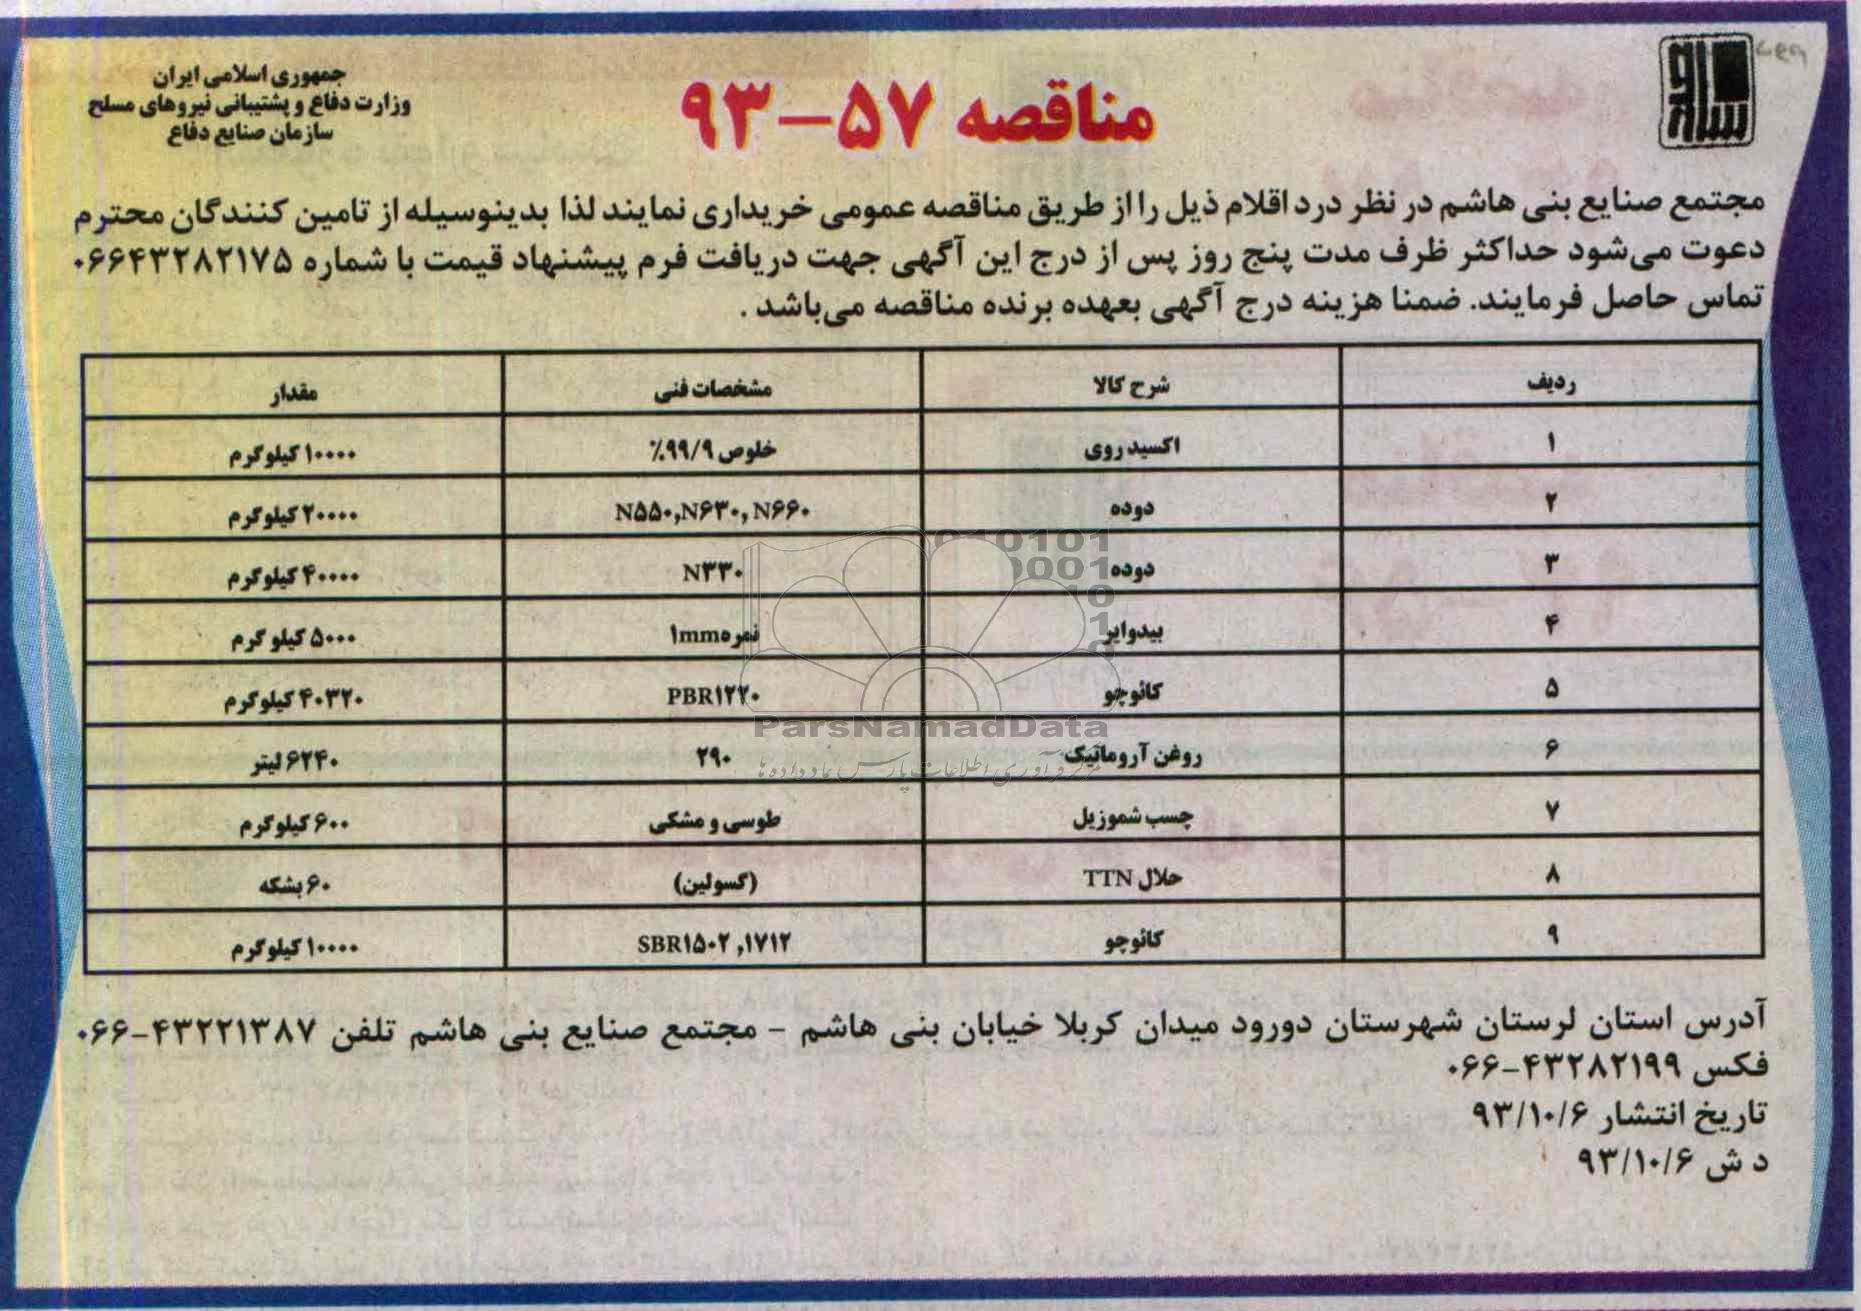 جمهوری اسلامی ایران
وزارت دفاع و پشتیبانی نیروهای مسلح
سازمان صنایع دفاع
ساصد
مناقصه ۵۷-۹۳
مجتمع صنایع بنی هاشم در نظر درد اقلام ذیل را از طریق مناقصه عمومی خریداری نمایند لذا بدینوسیله از تامین کنندگان محترم
دعوت می‌شود حداکثر ظرف مدت پنج روز پس از درج این آگهی جهت دریافت فرم پیشنهاد قیمت با شماره ۰۶۶۴۳۲۸۲۱۷۵
تماس حاصل فرمایند. ضمنا هزینه درج آگهی بعهده برنده مناقصه می‌باشد .
ردیف شرح کالا مشخصات فنی مقدار
۱ اکسید روی خلوص ۹۹/۹٪ ۱۰۰۰۰ کیلوگرم
۲ دوده N۵۵۰,N۶۳۰, N۶۶۰ ۲۰۰۰۰ کیلوگرم
۳ دوده N۳۳۰ ۴۰۰۰۰ کیلوگرم
۴ بیدوایر نمره ۱mm ۵۰۰۰ کیلو گرم
۵ کائوچو PBR۱۲۲۰ ۴۰۳۲۰ کیلوگرم
۶ روغن آروماتیک ۲۹۰ ۶۲۴۰ لیتر
۷ چسب شموزیل طوسی و مشکی ۶۰۰ کیلوگرم
۸ حلال TTN (گسولین) ۶۰ بشکه
۹ کائوچو SBR۱۵۰۲ ,۱۷۱۲ ۱۰۰۰۰ کیلوگرم
ParsNamadData
آدرس استان لرستان شهرستان دورود میدان کربلا خیابان بنی هاشم - مجتمع صنایع بنی هاشم تلفن ۴۳۲۲۱۳۸۷-۰۶۶
فکس ۴۳۲۸۲۱۹۹-۰۶۶
تاریخ انتشار ۹۳/۱۰/۶
د ش ۹۳/۱۰/۶